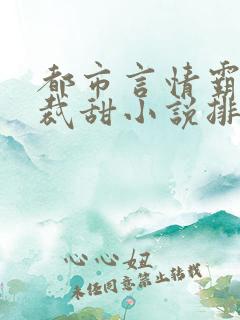 都市言情霸
裁甜小说排
心心妞
未经同意禁止转载